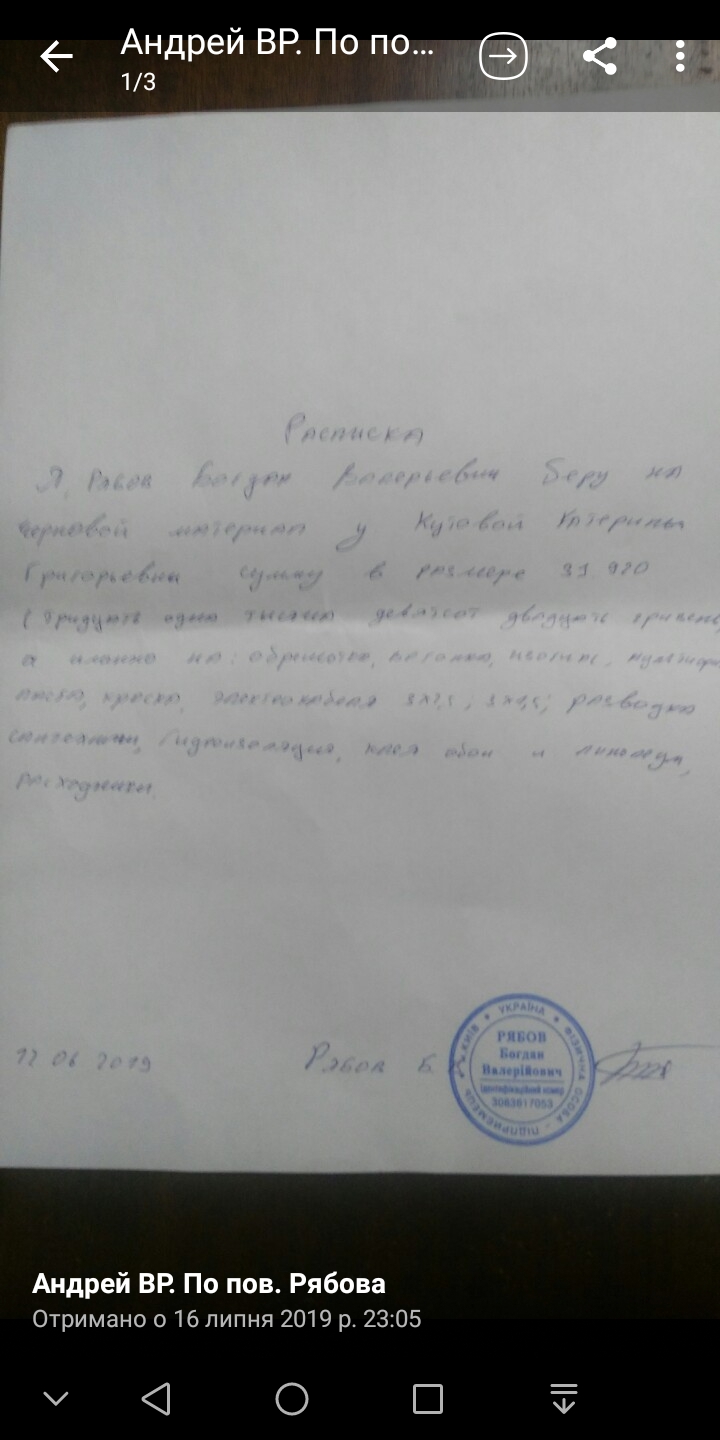 Андрей ВР. По по...
1/3
Расписка
Я, Рябов Богдан Валерьевич беру на
черновой материал у Кутовой Катерины
Григорьевны сумму в размере 31.920
(Тридцать одна тысяча девятсот двадцать гривень
а именно на: вагонка,
краска, электрокабеля 3х2,5; 3х1,5; разводка
гидроизоляция, клея обои и
расходники.
12 06 2019 Рябов Б. В.
УКРАЇНА * ФІЗИЧНА ОСОБА - ПІДПРИЄМЕЦЬ * м. КИЇВ *
РЯБОВ
Богдан
Валерійович
Ідентифікаційний номер
3063617053
Андрей ВР. По пов. Рябова
Отримано о 16 липня 2019 р. 23:05